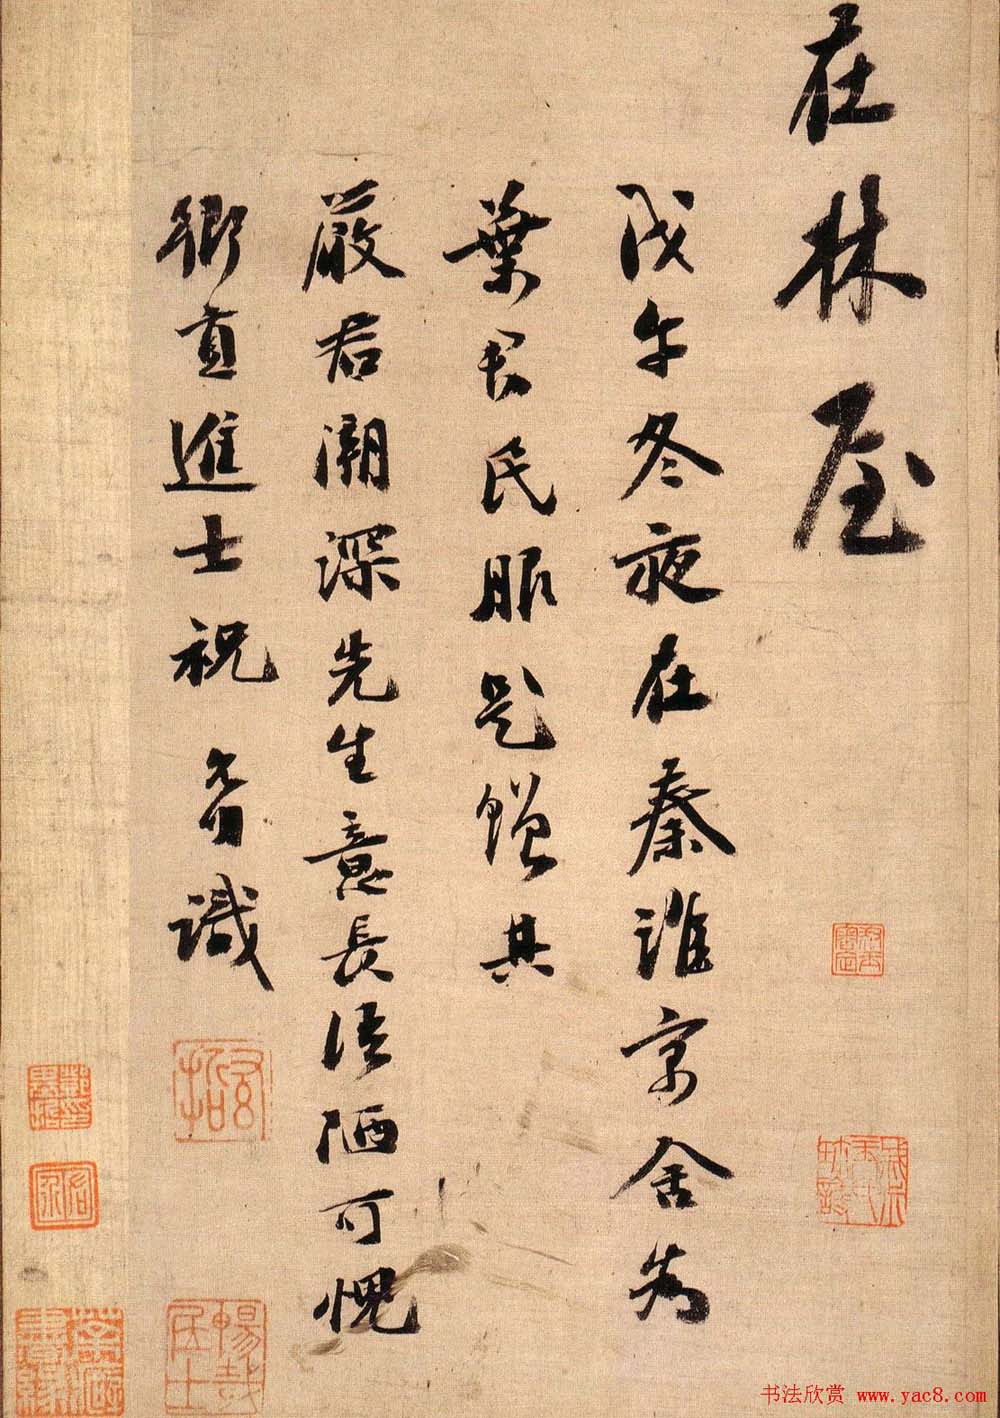 在林屋
戊午冬夜在秦淮京舍為
葉君民服贈其
嚴君潮深先生意長語陋可愧
鄉貢進士祝允明識
暢哉居士
书法欣赏 www.yac8.com